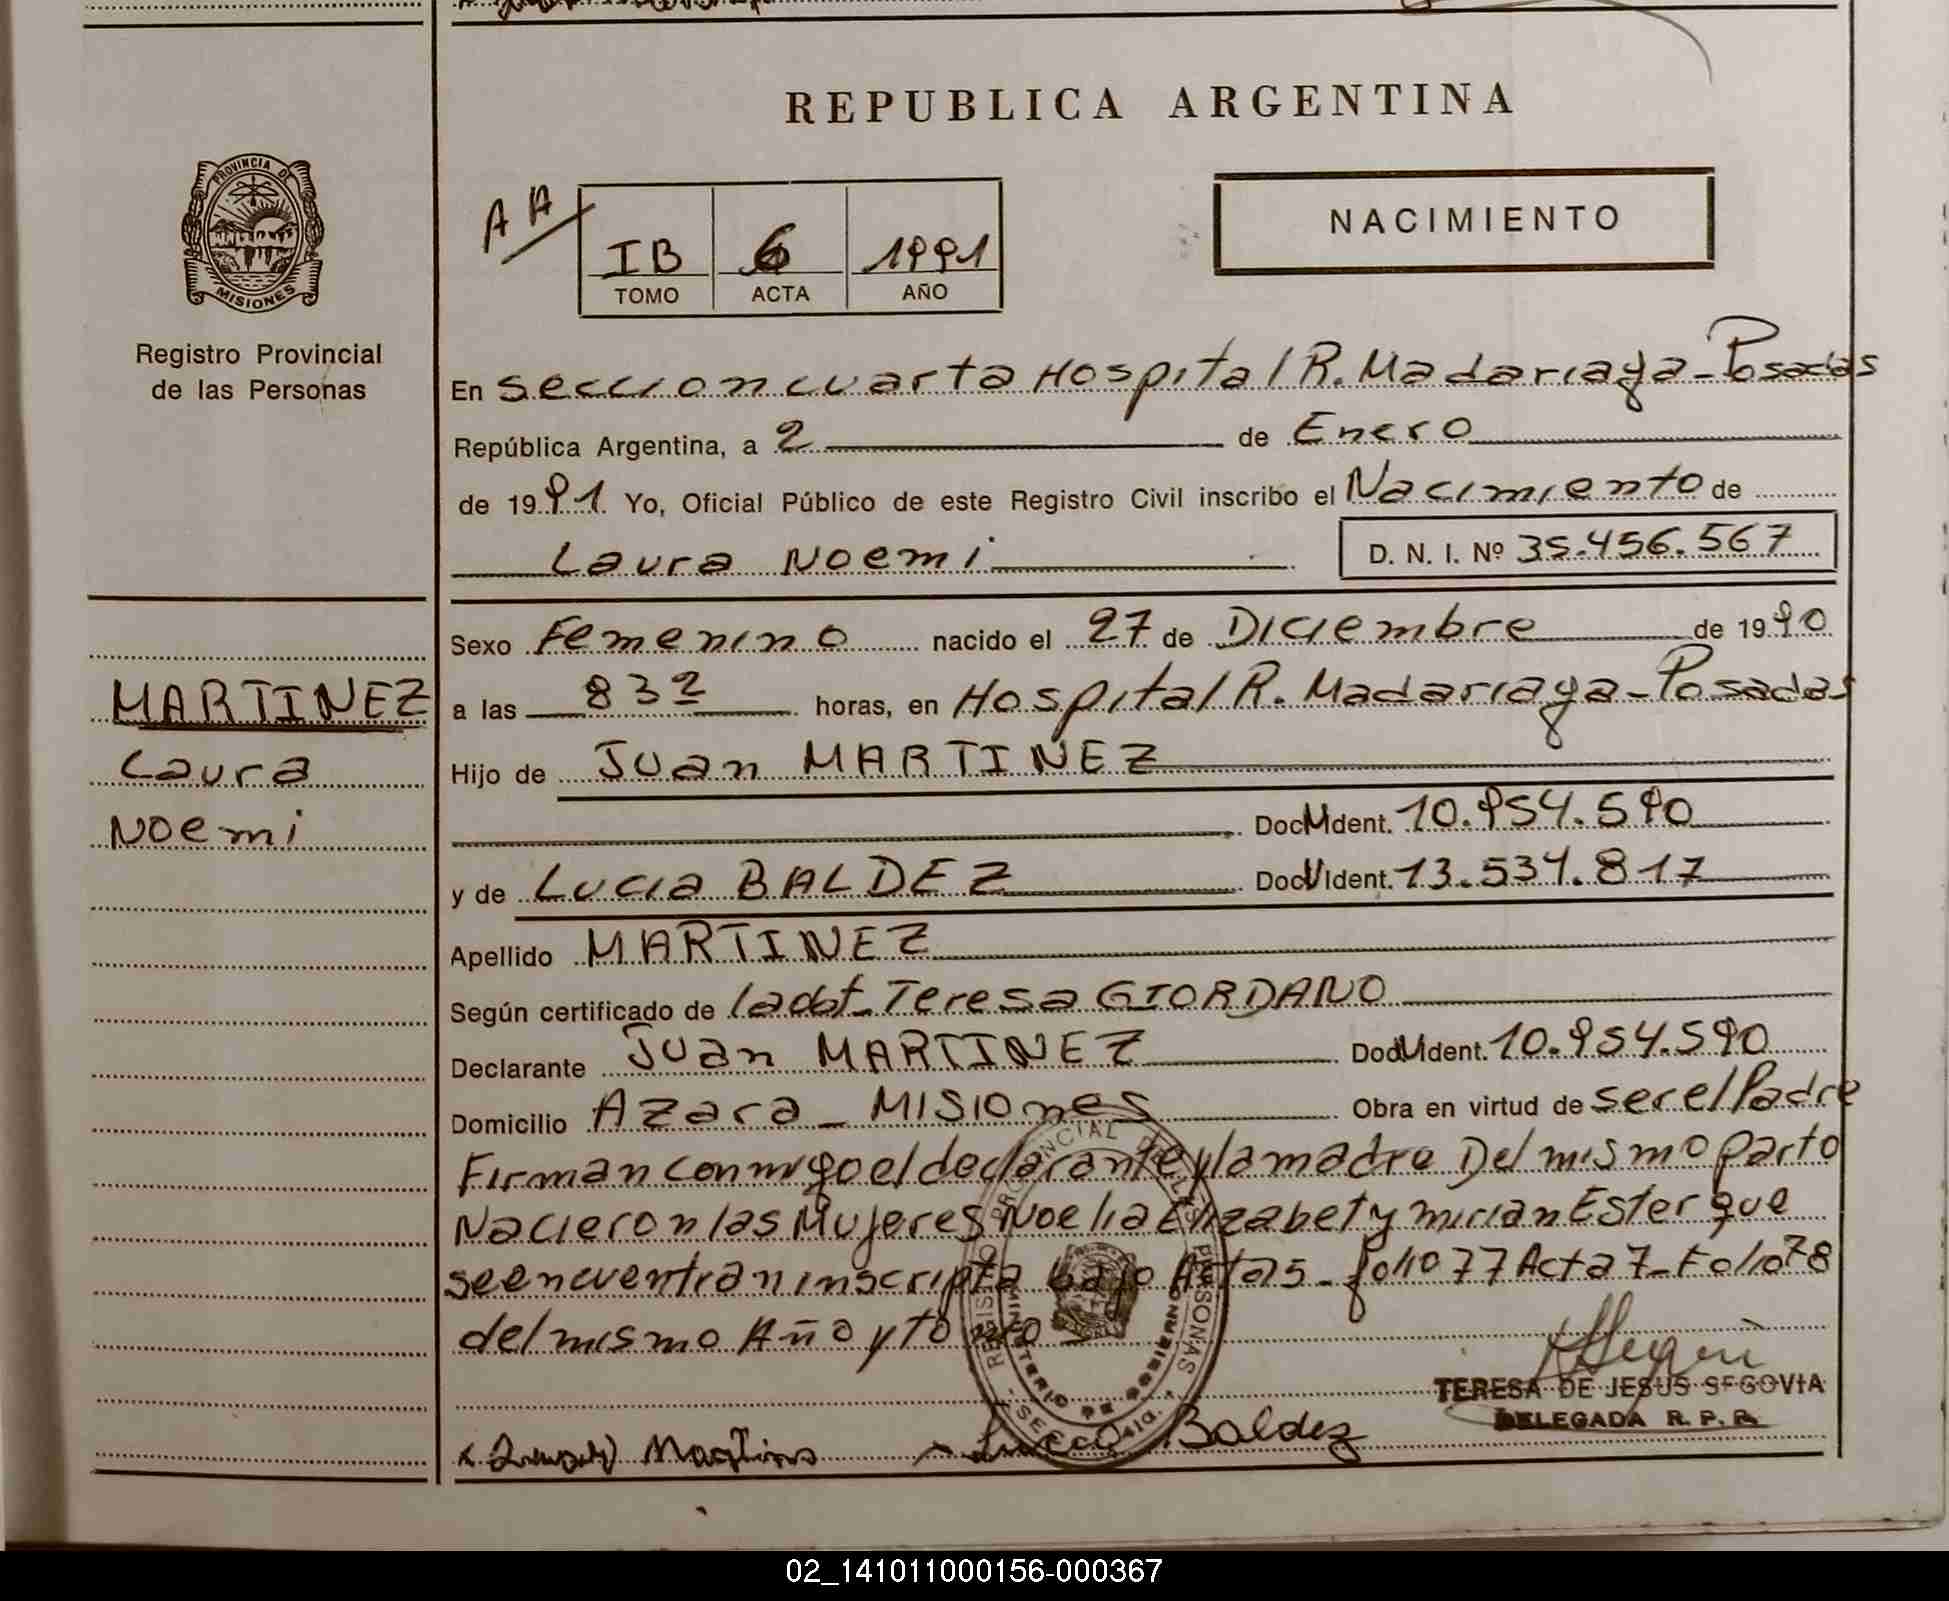 REPUBLICA ARGENTINA
PROVINCIA DE MISIONES
Registro Provincial
de las Personas
AA
IB 6 1991
TOMO ACTA AÑO
NACIMIENTO
En Seccion cuarta Hospital R. Madariaga - Posadas
República Argentina, a 2 de Enero
de 1991 Yo, Oficial Público de este Registro Civil inscribo el Nacimiento de
Laura Noemi D. N. I. Nº 35.456.567
Sexo Femenino nacido el 27 de Diciembre de 1990
a las 8 32 horas, en Hospital R. Madariaga - Posadas
Hijo de Juan MARTINEZ
Doc M Ident. 10.954.590
y de Lucia BALDEZ Doc U Ident. 13.534.817
Apellido MARTINEZ
Según certificado de la obt. Teresa GIORDANO
Declarante Juan MARTINEZ Doc M Ident. 10.954.590
Domicilio Azara - MISIONES Obra en virtud de ser el Padre
Firman conmigo el declarante y la madre Del mismo parto
Nacieron las Mujeres Noelia Elizabet y mirian Ester que
se encuentran inscripta bajo Acta 5 - folio 77 Acta 7 - Folio 78
del mismo Año y tomo -
MARTINEZ
Laura
Noemi
REGISTRO PROVINCIAL DE LAS PERSONAS
MINISTERIO DE GOBIERNO
TERESA DE JESUS SEGOVIA
DELEGADA R. P. P.
x Martines x Lucia Baldez
02_141011000156-000367